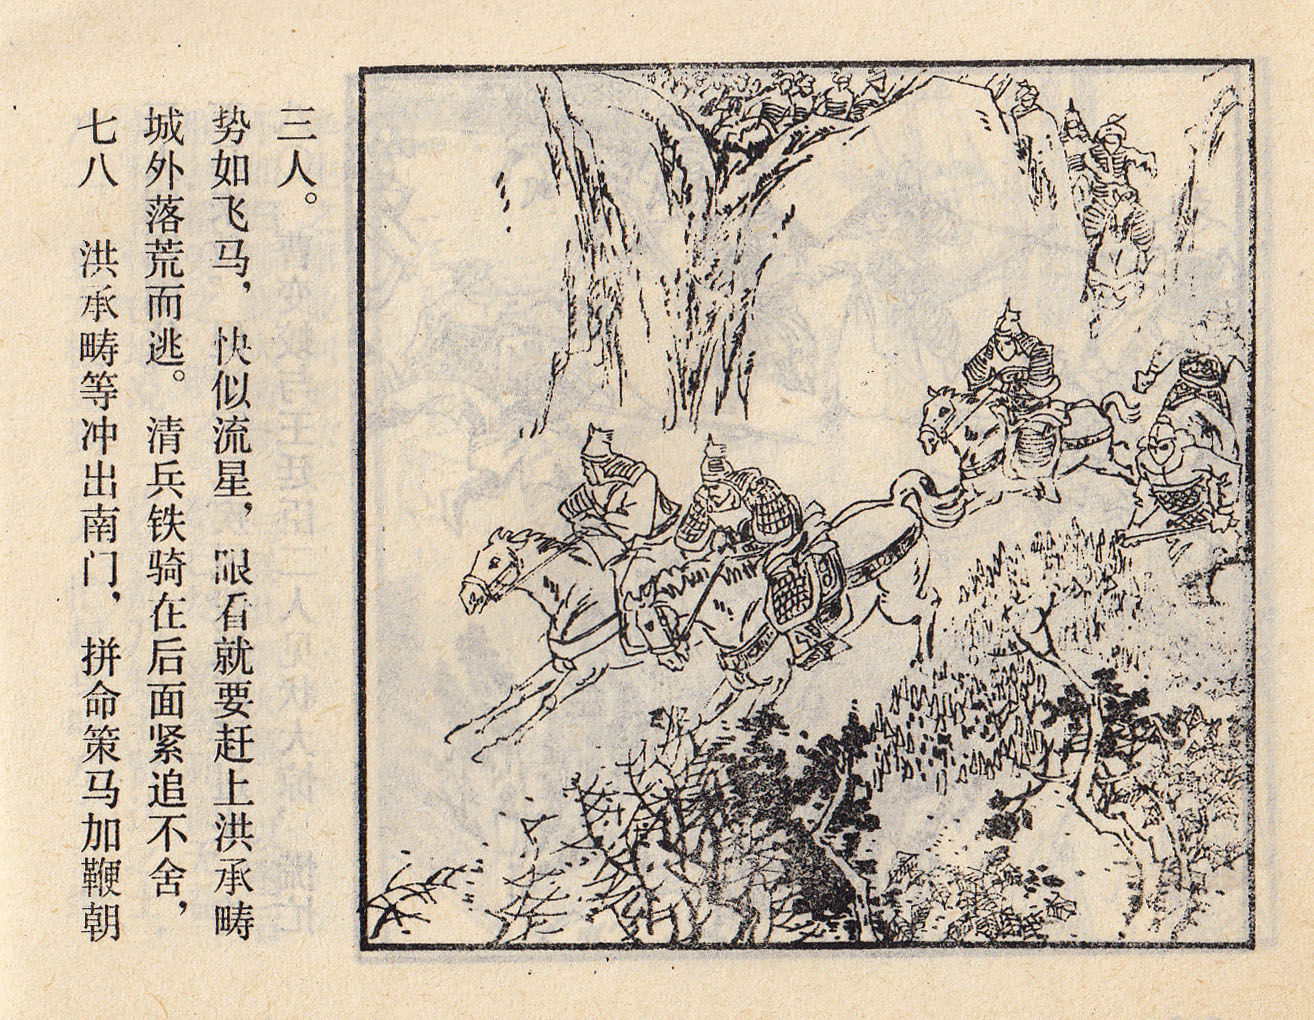 七八　洪承畴等冲出南门，拼命策马加鞭朝
城外落荒而逃。清兵铁骑在后面紧追不舍，
势如飞马，快似流星，眼看就要赶上洪承畴
三人。